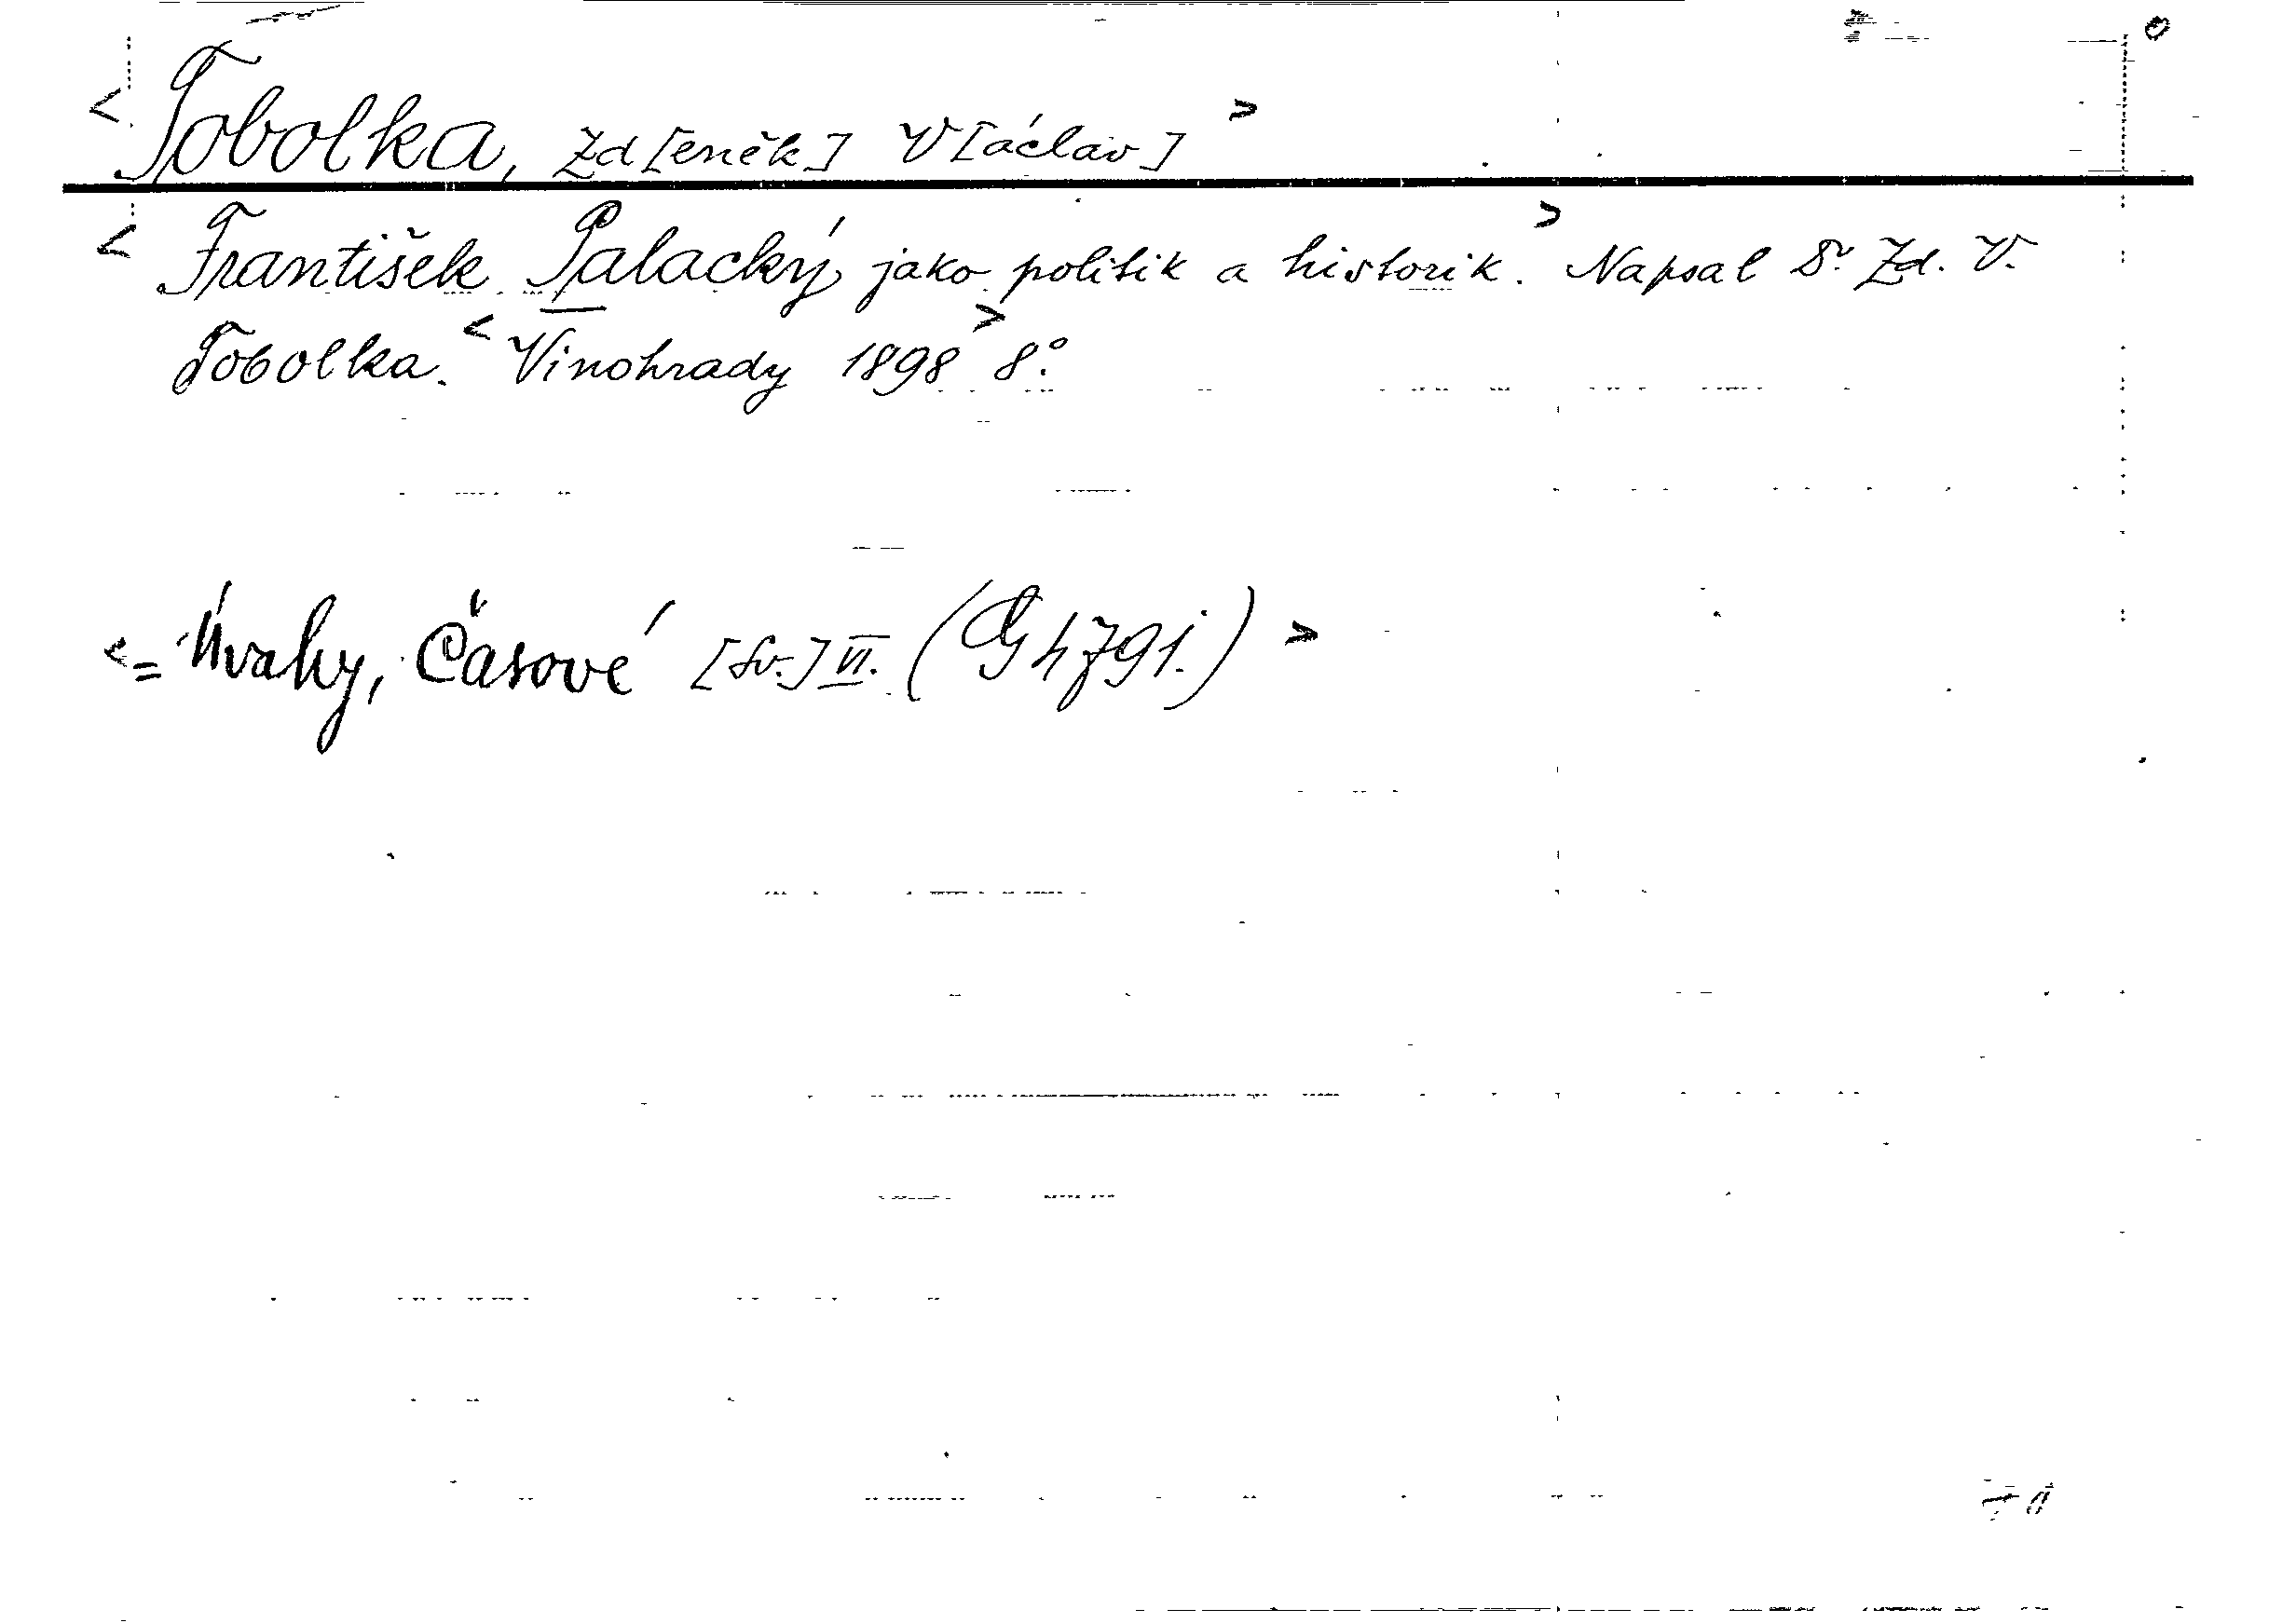 < Tobolka, Zd[eněk] V[áclav] >
< František Palacký jako politik a historik. > Napsal Dr. Zd. V.
Tobolka. < Vinohrady 1898 > 8°.
<= Úvahy, Časové [Sv.] VI. (G h 791.) >